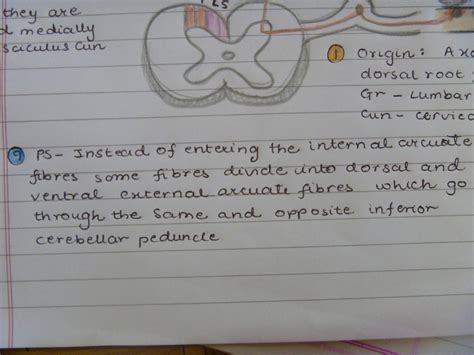 they are
d medially
sciculus Cun
PLS
① Origin: Axo
dorsal root
Gr - Lumbar
Cun - Cervica
⑨ PS- Instead of entering the internal arcuate
fibres some fibres divide into dorsal and
ventral external arcuate fibres which go
through the same and opposite inferior
cerebellar peduncle